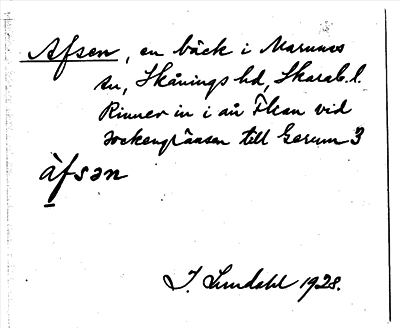 Afsen, en bäck i Marums
sn, Skånings hd, Skarab. l.
Rinner in i ån Flian vid
sockengränsen till Gerum 3
àfsən
I. Lundahl 1928.